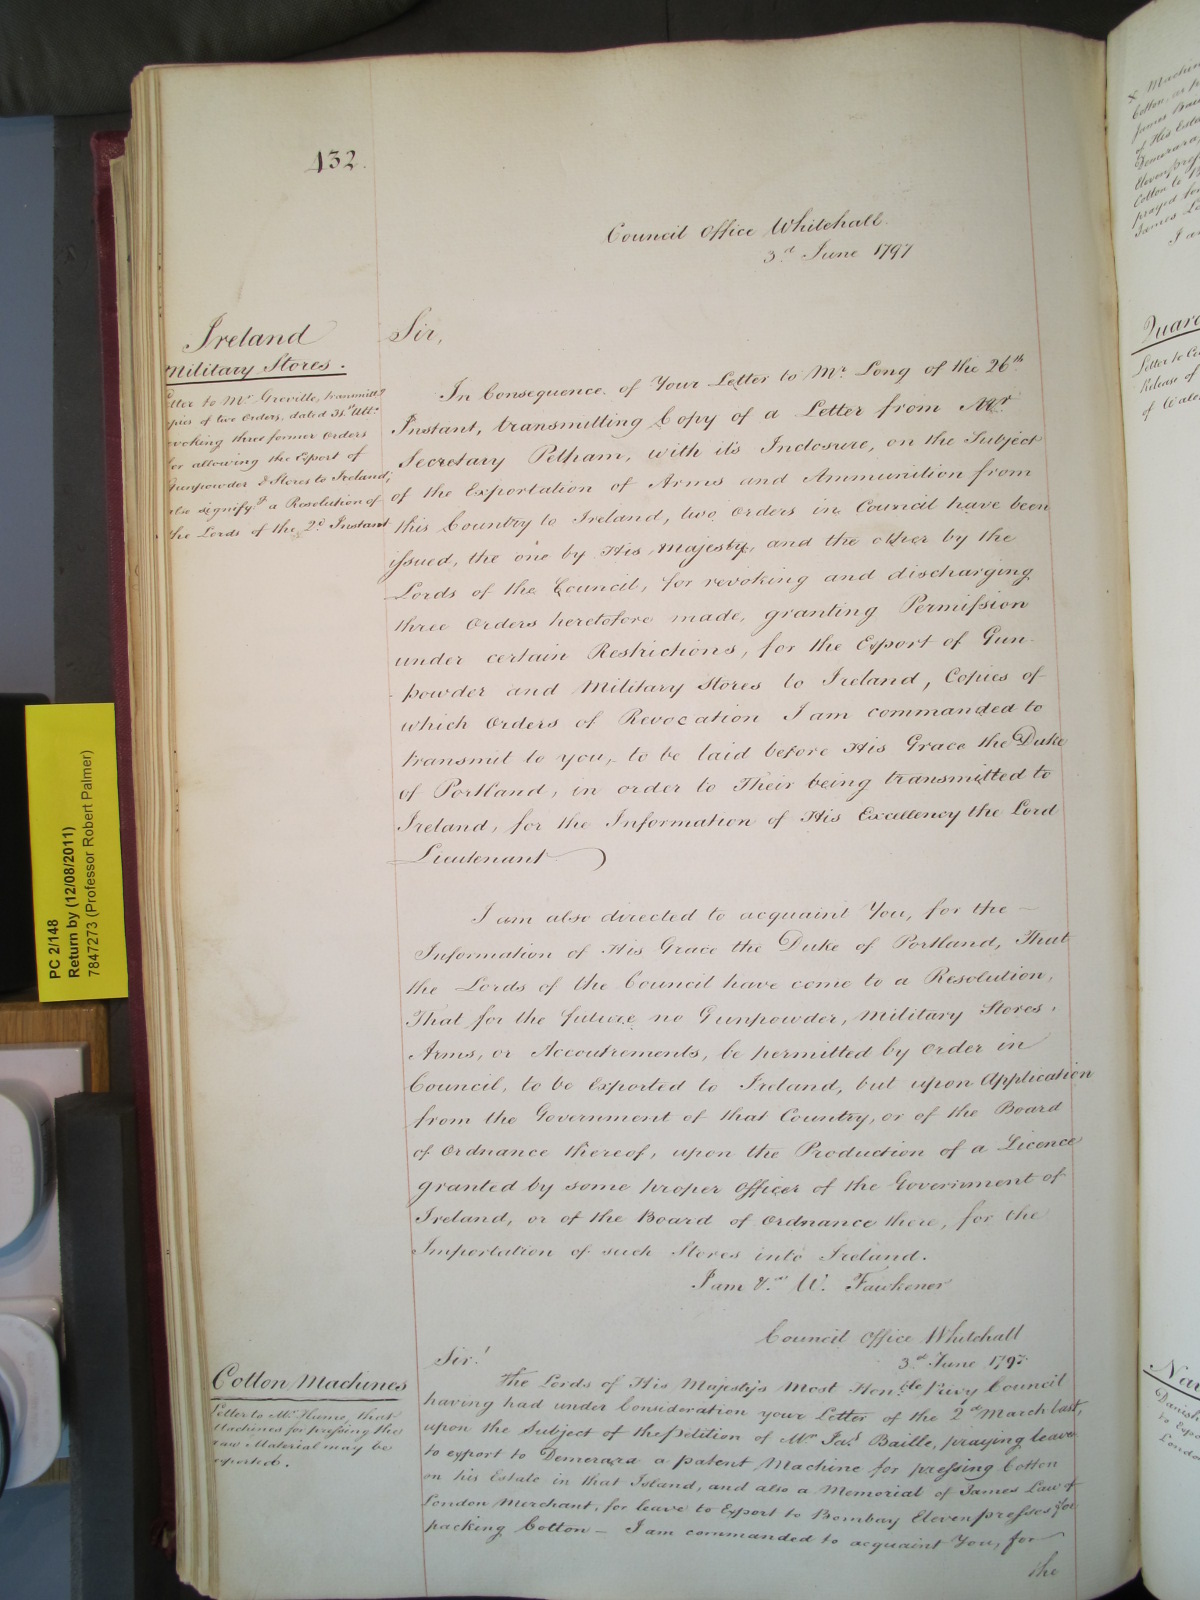 132.
Council Office Whitehall
3.d June 1797
Ireland
Military Stores.
to Mr. Greville, transmitt.g
of two Orders, dated 31.st Ult.o
three former Orders
for allowing the Export of
Gunpowder & Stores to Ireland,
also signify.g a Resolution of
the Lords of the 2.d Instant
Sir,
In Consequence of Your Letter to Mr. Long of the 26.th
Instant, transmitting Copy of a Letter from Mr.
Secretary Pelham, with it's Inclosure, on the Subject
of the Exportation of Arms and Ammunition from
this Country to Ireland, two Orders in Council have been
issued, the one by His Majesty, and the other by the
Lords of the Council, for revoking and discharging
three Orders heretofore made, granting Permission
under certain Restrictions, for the Export of Gun-
powder and Military Stores to Ireland, Copies of
which Orders of Revocation I am commanded to
transmit to you, to be laid before His Grace the Duke
of Portland, in order to Their being transmitted to
Ireland, for the Information of His Excellency the Lord
Lieutenant
I am also directed to acquaint You, for the
Information of His Grace the Duke of Portland, That
the Lords of the Council have come to a Resolution,
That for the future no Gunpowder, Military Stores,
Arms, or Accoutrements, be permitted by Order in
Council, to be Exported to Ireland, but upon Application
from the Government of that Country, or of the Board
of Ordnance thereof, upon the Production of a Licence
granted by some proper Officer of the Government of
Ireland, or of the Board of Ordnance there, for the
Importation of such Stores into Ireland.
I am &.ca W. Fawkener
Council Office Whitehall
3.d June 1797
Cotton Machines
Letter to Mr. Hume, that
Machines for pressing the
raw Material may be
exported.
Sir!
The Lords of His Majesty's Most Hon.ble Privy Council
having had under Consideration your Letter of the 2.d March last,
upon the Subject of the petition of Mr. Ja.s Baille, praying leave
to export to Demerara a patent Machine for pressing Cotton
on his Estate in that Island, and also a Memorial of James Law of
London Merchant, for leave to Export to Bombay Eleven presses for
packing Cotton – I am commanded to acquaint You, for
the
PC 2/148
Return by (12/08/2011)
7847273 (Professor Robert Palmer)
Cotton, as
James
of His Esta
Demerara,
Eleven
Cotton to B
prayed for
James La
I am
Letter to
Release of
of
Danish
to Expo
London